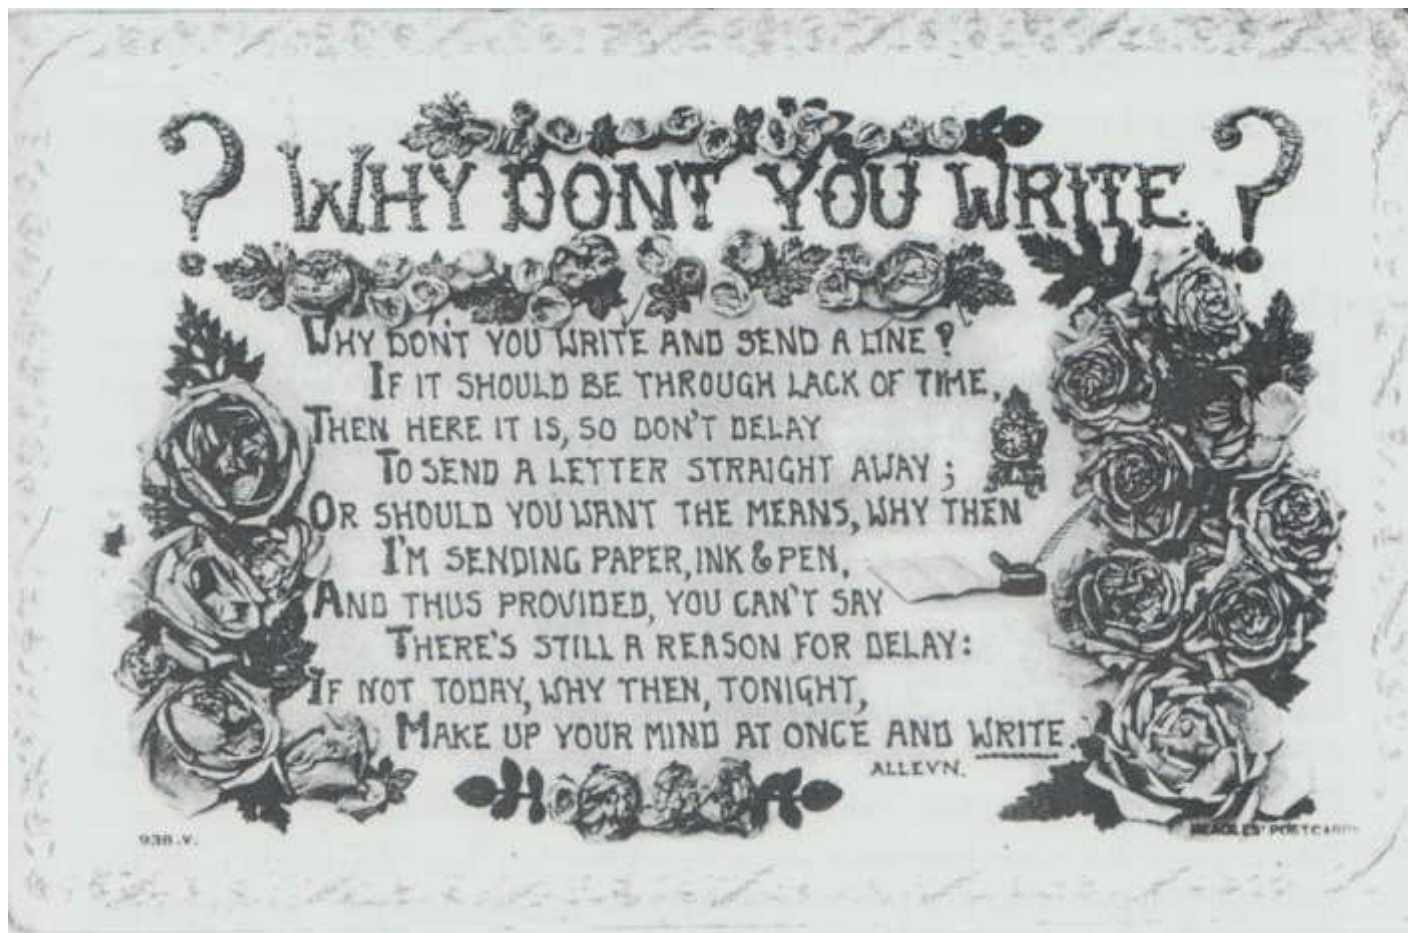 ? WHY DONT YOU WRITE. ?
WHY DON'T YOU WRITE AND SEND A LINE?
IF IT SHOULD BE THROUGH LACK OF TIME,
THEN HERE IT IS, SO DON'T DELAY
TO SEND A LETTER STRAIGHT AWAY;
OR SHOULD YOU WANT THE MEANS, WHY THEN
I'M SENDING PAPER, INK & PEN,
AND THUS PROVIDED, YOU CAN'T SAY
THERE'S STILL A REASON FOR DELAY:
IF NOT TODAY, WHY THEN, TONIGHT,
MAKE UP YOUR MIND AT ONCE AND WRITE.
ALLEVN.
938.V.
BEAGLES' POSTCARDS